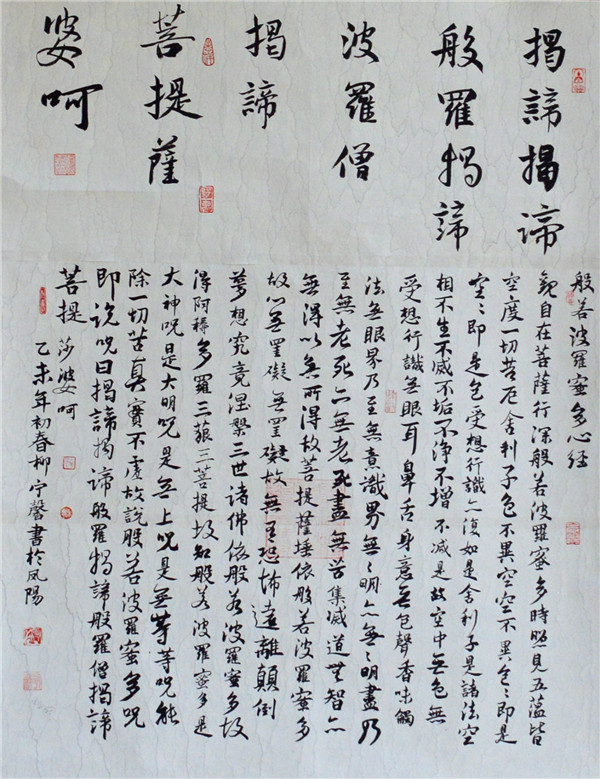 揭諦揭諦
般羅揭諦
波羅僧
揭諦
菩提薩
婆呵
般若波羅蜜多心经
觀自在菩薩行深般若波羅蜜多時照見五蕴皆
空度一切苦厄舍利子色不異空空不異色々即是
空々即是色受想行識亦復如是舍利子是諸法空
相不生不滅不垢不净不增不减是故空中無色無
受想行識無眼耳鼻舌身意無色聲香味觸
法無眼界乃至無意識界無々明亦無々明盡乃
至無老死亦無老死盡無苦集滅道無智亦
無得以無所得故菩提薩埵依般若波羅蜜多
故心無罣礙無罣礙故無有恐怖遠離顛倒
夢想究竟涅槃三世諸佛依般若波羅蜜多故
得阿耨多羅三藐三菩提故知般若波羅蜜多是
大神咒是大明咒是無上咒是無等等咒能
除一切苦真實不虚故說般若波羅蜜多咒
即说咒曰揭諦揭諦般羅揭諦般羅僧揭諦
菩提莎婆呵
乙未年初春柳宁馨書於凤陽